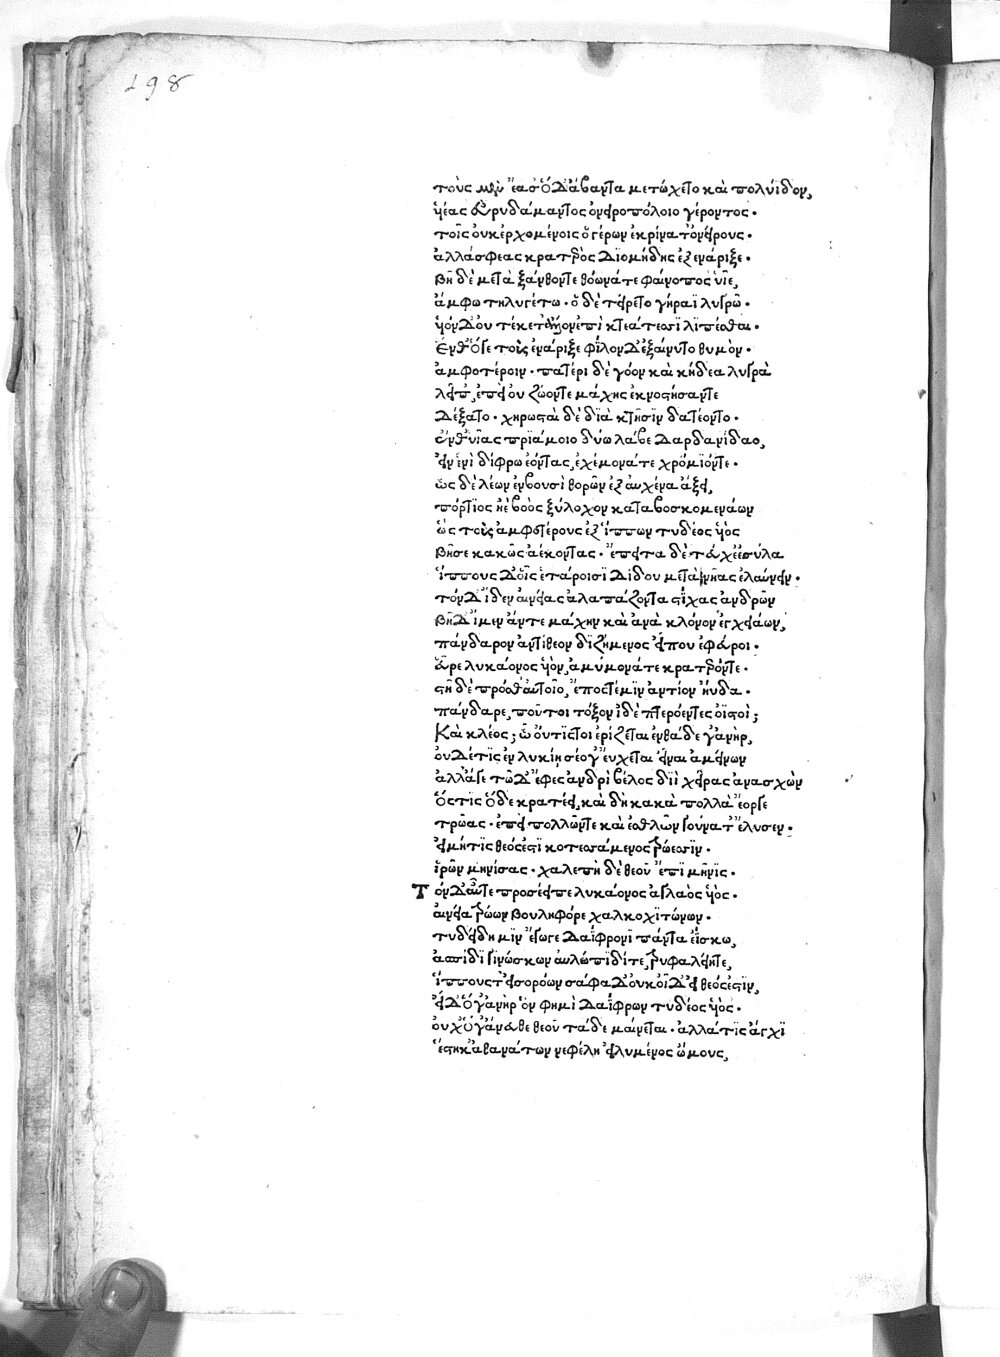 198
τοὺς μὲν ἔασ' ὁ δ' ἄβαντα μετώχετο καὶ πολύϊδον,
υἱέας εὐρυδάμαντος ὀνειροπόλοιο γέροντος·
τοῖς οὐκ ἐρχομένοις ὁ γέρων ἐκρίνατ' ὀνείρους·
ἀλλά σφεας κρατερὸς διομήδης ἐξενάριξε·
βῆ δὲ μετὰ ξάνθον τε θόωνά τε φαίνοπος υἷε,
ἄμφω τηλυγέτω· ὁ δὲ τείρετο γήραϊ λυγρῷ·
υἱὸν δ' οὐ τέκετ' ἄλλον ἐπὶ κτεάτεσσι λιπέσθαι·
ἔνθ' ὅγε τοὺς ἐνάριξε φίλον δ' ἐξαίνυτο θυμὸν·
ἀμφοτέροιν· πατέρι δὲ γόον καὶ κήδεα λυγρὰ
λεῖπ', ἐπεὶ οὐ ζώοντε μάχης ἐκνοστήσαντε
δέξατο· χηρωσταὶ δὲ διὰ κτῆσιν δατέοντο·
ἔνθ' υἷας πριάμοιο δύω λάβε δαρδανίδαο,
εἰν ἑνὶ δίφρω ἐόντας, ἐχέμονά τε χρόμιόν τε·
ὡς δὲ λέων ἐν βουσὶ θορὼν ἐξ αὐχένα ἄξει,
πόρτιος ἠὲ βοὸς ξύλοχον κατα βοσκομενάων
ὣς τοὺς ἀμφοτέρους ἐξ ἵππων τυδέος υἱὸς
βῆσε κακῶς ἀέκοντας· ἔπειτα δὲ τεύχε' ἐσύλα
ἵππους δ' οἷς ἑτάροισι δίδου μετὰ νῆας ἐλαύνειν·
τὸν δ' ἴδεν αἰνείας ἀλαπάζοντα στίχας ἀνδρῶν
βῆ δ' ἴμεν ἄν τε μάχην καὶ ἀνὰ κλόνον ἐγχειάων,
πάνδαρον ἀντίθεον διζήμενος εἴ που ἐφεύροι·
εὗρε λυκάονος υἱὸν, ἀμύμονά τε κρατερόν τε·
στῆ δὲ πρόσθ' αὐτοῖο, ἔπος τέ μιν ἀντίον ηὔδα·
πάνδαρε, ποῦ τοι τόξον ἰδὲ πτερόεντες ὀϊστοὶ;
Καὶ κλέος; ὧ οὔτις τοι ἐρίζεται ἐνθάδε γ' ἀνὴρ,
οὐδέ τις ἐν λυκίη σέο γ' εὔχεται εἶναι ἀμείνων
ἀλλ' ἄγε τῶ δ' ἔφες ἀνδρὶ βέλος διὶ χεῖρας ἀνασχὼν
ὅς τις ὅδε κρατέει, καὶ δὴ κακὰ πολλὰ ἔοργε
τρῶας· ἐπεὶ πολλῶν τε καὶ ἐσθλῶν γούνατ' ἔλυσεν·
εἰ μή τις θεός ἐστι κοτεσσάμενος τρώεσσιν·
ἱρῶν μηνίσας· χαλεπὴ δὲ θεοῦ ἔπι μῆνις·
Τὸν δ' αὖτε προσέειπε λυκάονος ἀγλαὸς υἱὸς·
αἰνεία τρώων βουληφόρε χαλκοχιτώνων·
τυδείδη μιν ἔγωγε δαΐφρονι πάντα ἐΐσκω,
ἀσπίδι γινώσκων αὐλώπιδί τε τρυφαλείη τε,
ἵππους τ' εἰσορόων σάφα δ' οὐκ οἶδ' εἰ θεός ἐστιν,
εἰ δ' ὅγ' ἀνὴρ ὅν φημὶ δαΐφρων τυδέος υἱὸς·
οὐχ ὅγ' ἄνευθε θεοῦ τάδε μαίνεται· ἀλλά τις ἄγχι
ἕστηκ' ἀθανάτων νεφέλη εἰλυμένος ὤμους,